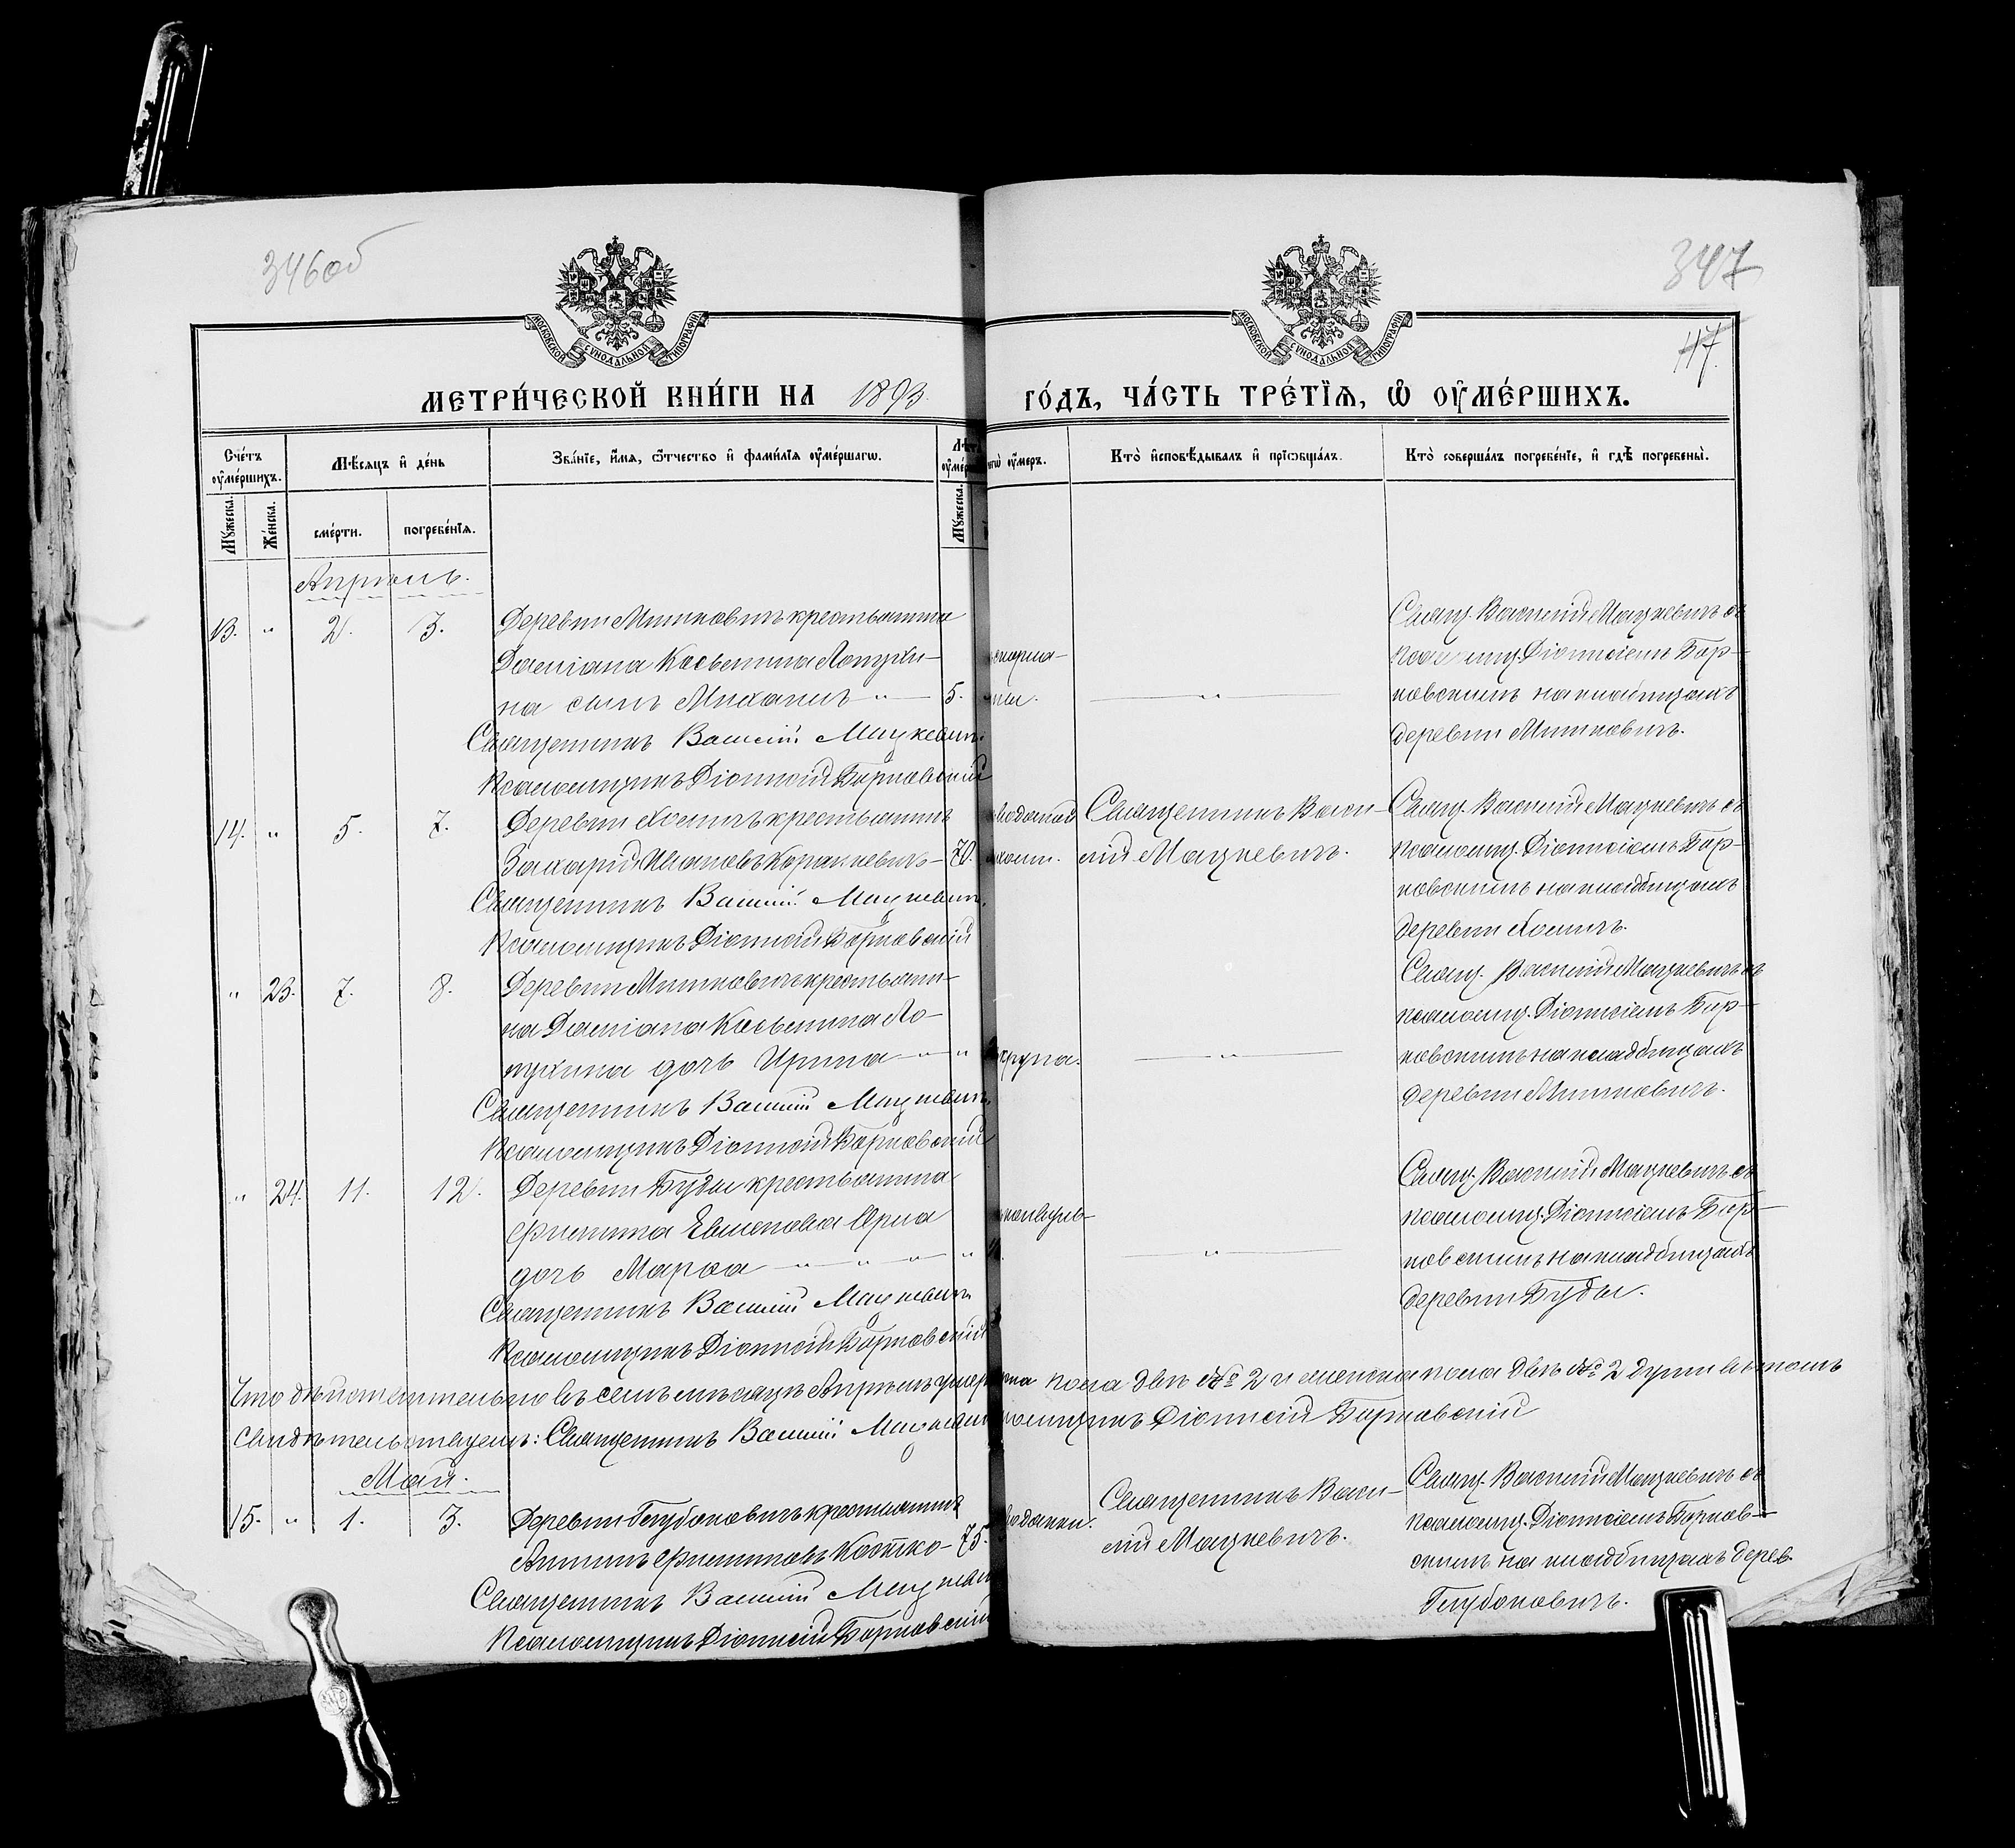 346об
347
47.
МОСКОВСКОЙ СѴНОДАЛЬНОЙ ТИПОГРАФІИ
МОСКОВСКОЙ СѴНОДАЛЬНОЙ ТИПОГРАФІИ
МЕТРИ́ЧЕСКОЙ КНИ́ГИ НА 1893. ГО́ДЪ, ЧА́СТЬ ТРЕ́ТЇѦ, Ѽ ОУ҆МЕ́РШИХЪ.
Сче́тъ оу҆ме́ршихъ.
Мѣ́сяцъ и҆ де́нь
Зва́нїе, и҆́мѧ, ѻ҆́тчество и҆ фами́лїѧ оу҆ме́ршагѡ.
оу҆́меръ.
Кто̀ и҆сповѣ́дывалъ и҆ прїѡбща́лъ.
Кто̀ соверша́лъ погребе́нїе, и҆ гдѣ̀ погребены̀.
Мꙋ́жеска.
Же́нска.
сме́рти.
погребе́нїѧ.
Мꙋ́жеска.
Апрѣль.
13. " 2. 3. Деревни Мишковичъ крестьянина
Даміана Касьянина Лопухи-
на сынъ Михаилъ — " — 5.
Священникъ Василій Мацкевичъ
Псаломщикъ Діонисій Бирковскій
Свящ. Василій Мацкевичъ съ
псаломщ. Діонисіемъ Бир-
ковскимъ на кладбищахъ
деревни Мишковичъ.
14. " 5. 7. Деревни Хомичъ крестьянинъ
Захарій Ивановъ — 70.
Священникъ Василій Мацкевичъ
Псаломщикъ Діонисій Бирковскій
Священникъ Васи-
лій Мацкевичъ.
Свящ. Василій Мацкевичъ съ
псаломщ. Діонисіемъ Бир-
ковскимъ на кладбищахъ
деревни Хомичъ.
" 23. 7. 8. Деревни Мишковичъ крестьяни-
на Даміана Касьянина Ло-
пухина дочь Ирина — " — "
крупа.
Священникъ Василій Мацкевичъ
Псаломщикъ Діонисій Бирковскій
Свящ. Василій Мацкевичъ съ
псаломщ. Діонисіемъ Бир-
ковскимъ на кладбищахъ
деревни Мишковичъ.
" 24. 11. 12. Деревни Буды крестьянина
Филиппа Орла
дочь Марѳа — " — " — "
Священникъ Василій Мацкевичъ
Псаломщикъ Діонисій Бирковскій
Свящ. Василій Мацкевичъ съ
псаломщ. Діонисіемъ Бир-
ковскимъ на кладбищахъ
деревни Буды.
Что дѣйствительно въ семъ мѣсяцѣ Апрѣлѣ пола двѣ № 2 и женска пола двѣ № 2 души въ томъ
свидѣтельствуемъ: Священникъ Василій Діонисій Бирковскій
Май.
15. " 1. 3. Деревни Глубоковичъ крестьянинъ
Антонъ Филипповъ Костко — 75.
Священникъ Василій
Псаломщикъ Діонисій Бирковскій
Священникъ Васи-
лій Мацкевичъ.
Свящ. Василій Мацкевичъ съ
псаломщ. Діонисіемъ Бирков-
скимъ на кладбищахъ дерев.
Глубоковичъ.